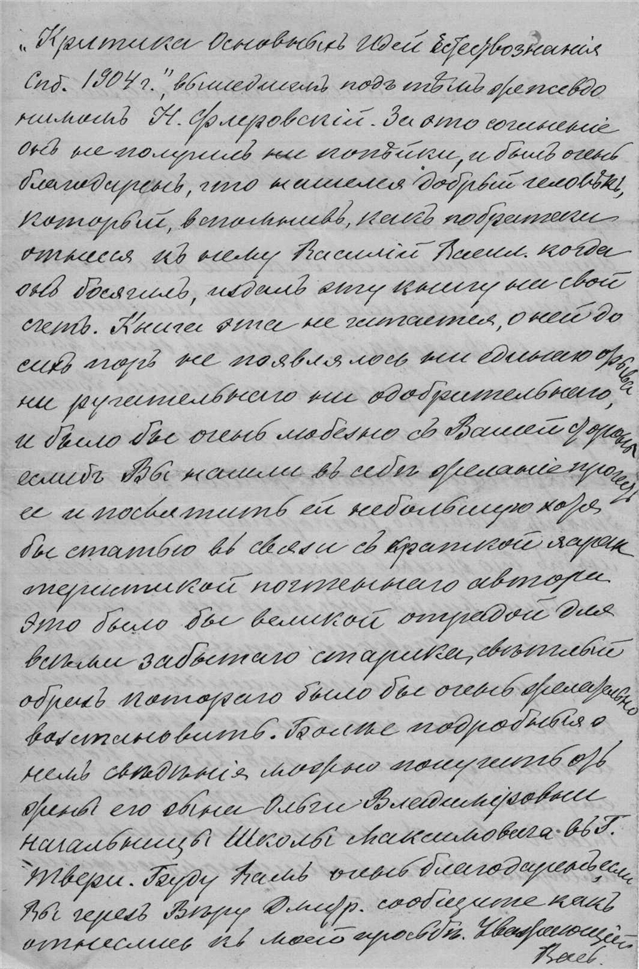 „Критика Основныхъ Идей Естествознанія
Спб. 1904 г.", вышедшемъ подъ тѣмъ же псевдо
нимомъ Н. Флеровскій. За это сочиненіе
онъ не получилъ ни копѣйки, и былъ очень
благодаренъ, что нашелся добрый человѣкъ,
который, вспомнивъ, какъ побратски
отнесся къ нему Василій Васил. когда
онъ босячилъ, издалъ эту книгу на свой
счетъ. Книга эта не читается, о ней до
сихъ поръ не появлялось ни единаго отзыва
ни ругательнаго ни одобрительнаго,
и было бы очень любезно съ Вашей стороны
еслибъ Вы нашли въ себѣ желаніе прочесть
ее и посвятить ей небольшую хотя
бы статью въ связи съ краткой харак
теристикой почтеннаго автора
Это было бы великой отрадой для
всѣми забытаго старика, свѣтлый
образъ котораго было бы очень желательно
возстановить. Болѣе подробныя о
немъ свѣдѣнія можно получить отъ
жены его сына Ольги Владиміровны
начальницы Школы Максимовича въ Г.
Твери. Буду Вамъ очень благодаренъ, если
Вы черезъ Вѣру Дмитр. сообщите какъ
отнеслись къ моей просьбѣ. Уважающій
Васъ.